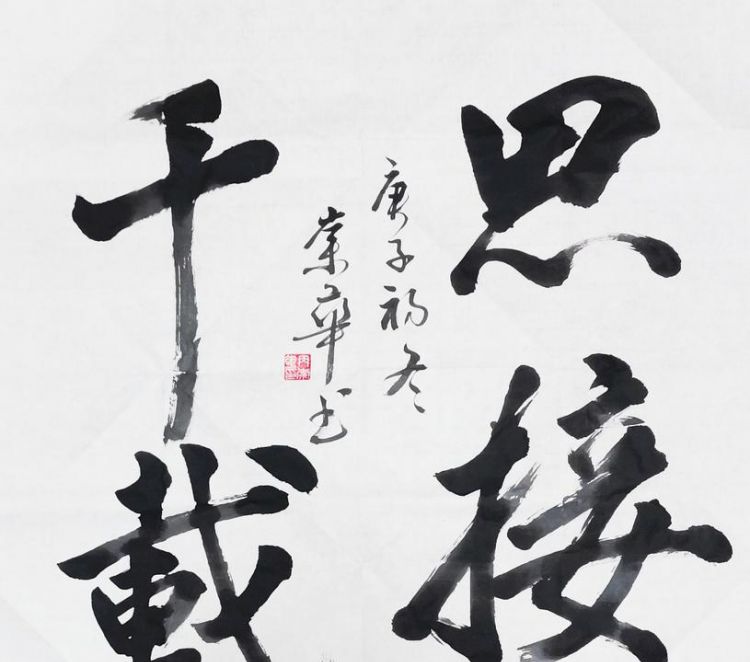 思接
千載
庚子初冬
荣華书